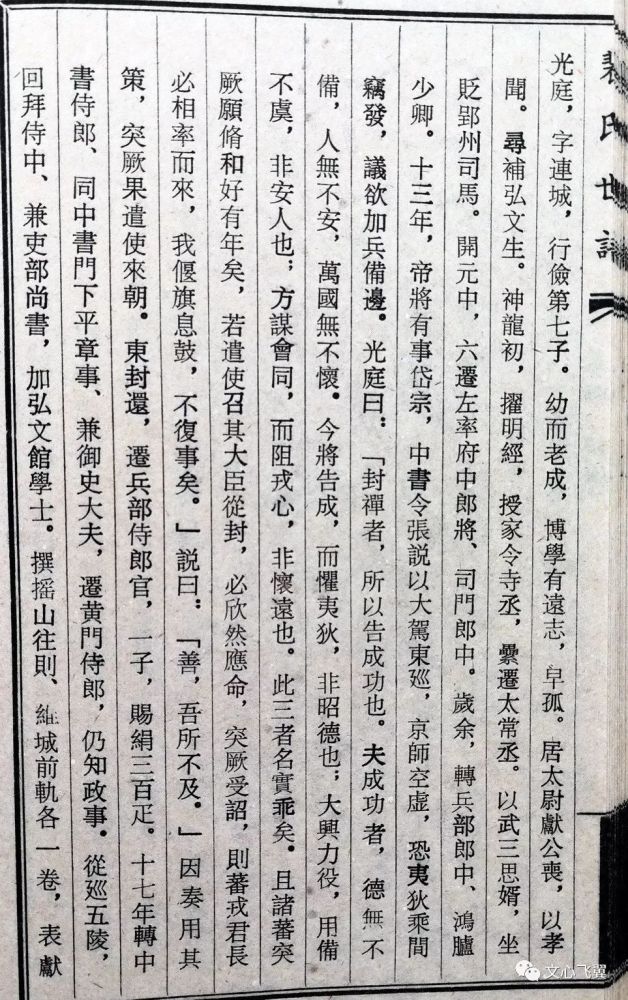 裴氏世譜
光庭，字連城，行儉第七子。幼而老成，博學有遠志，早孤。居太尉獻公喪，以孝
聞。尋補弘文生。神龍初，擢明經，授家令寺丞，纍遷太常丞。以武三思婿，坐
貶郢州司馬。開元中，六遷左率府中郎將、司門郎中。歲余，轉兵部郎中、鴻臚
少卿。十三年，帝將有事岱宗，中書令張説以大駕東巡，京師空虛，恐夷狄乘間
竊發，議欲加兵備邊。光庭曰：「封禪者，所以告成功也。夫成功者，德無不
備，人無不安，萬國無不懷。今將告成，而懼夷狄，非昭德也；大興力役，用備
不虞，非安人也；方謀會同，而阻戎心，非懷遠也。此三者名實乖矣。且諸蕃突
厥願脩和好有年矣，若遣使召其大臣從封，必欣然應命，突厥受詔，則蕃戎君長
必相率而來，我偃旗息鼓，不復事矣。」説曰：「善，吾所不及。」因奏用其
策，突厥果遣使來朝。東封還，遷兵部侍郎官，一子，賜絹三百疋。十七年轉中
書侍郎、同中書門下平章事、兼御史大夫，遷黄門侍郎，仍知政事。從巡五陵，
回拜侍中、兼吏部尚書，加弘文館學士。撰摇山往則、維城前軌各一卷，表獻
文心飞翼